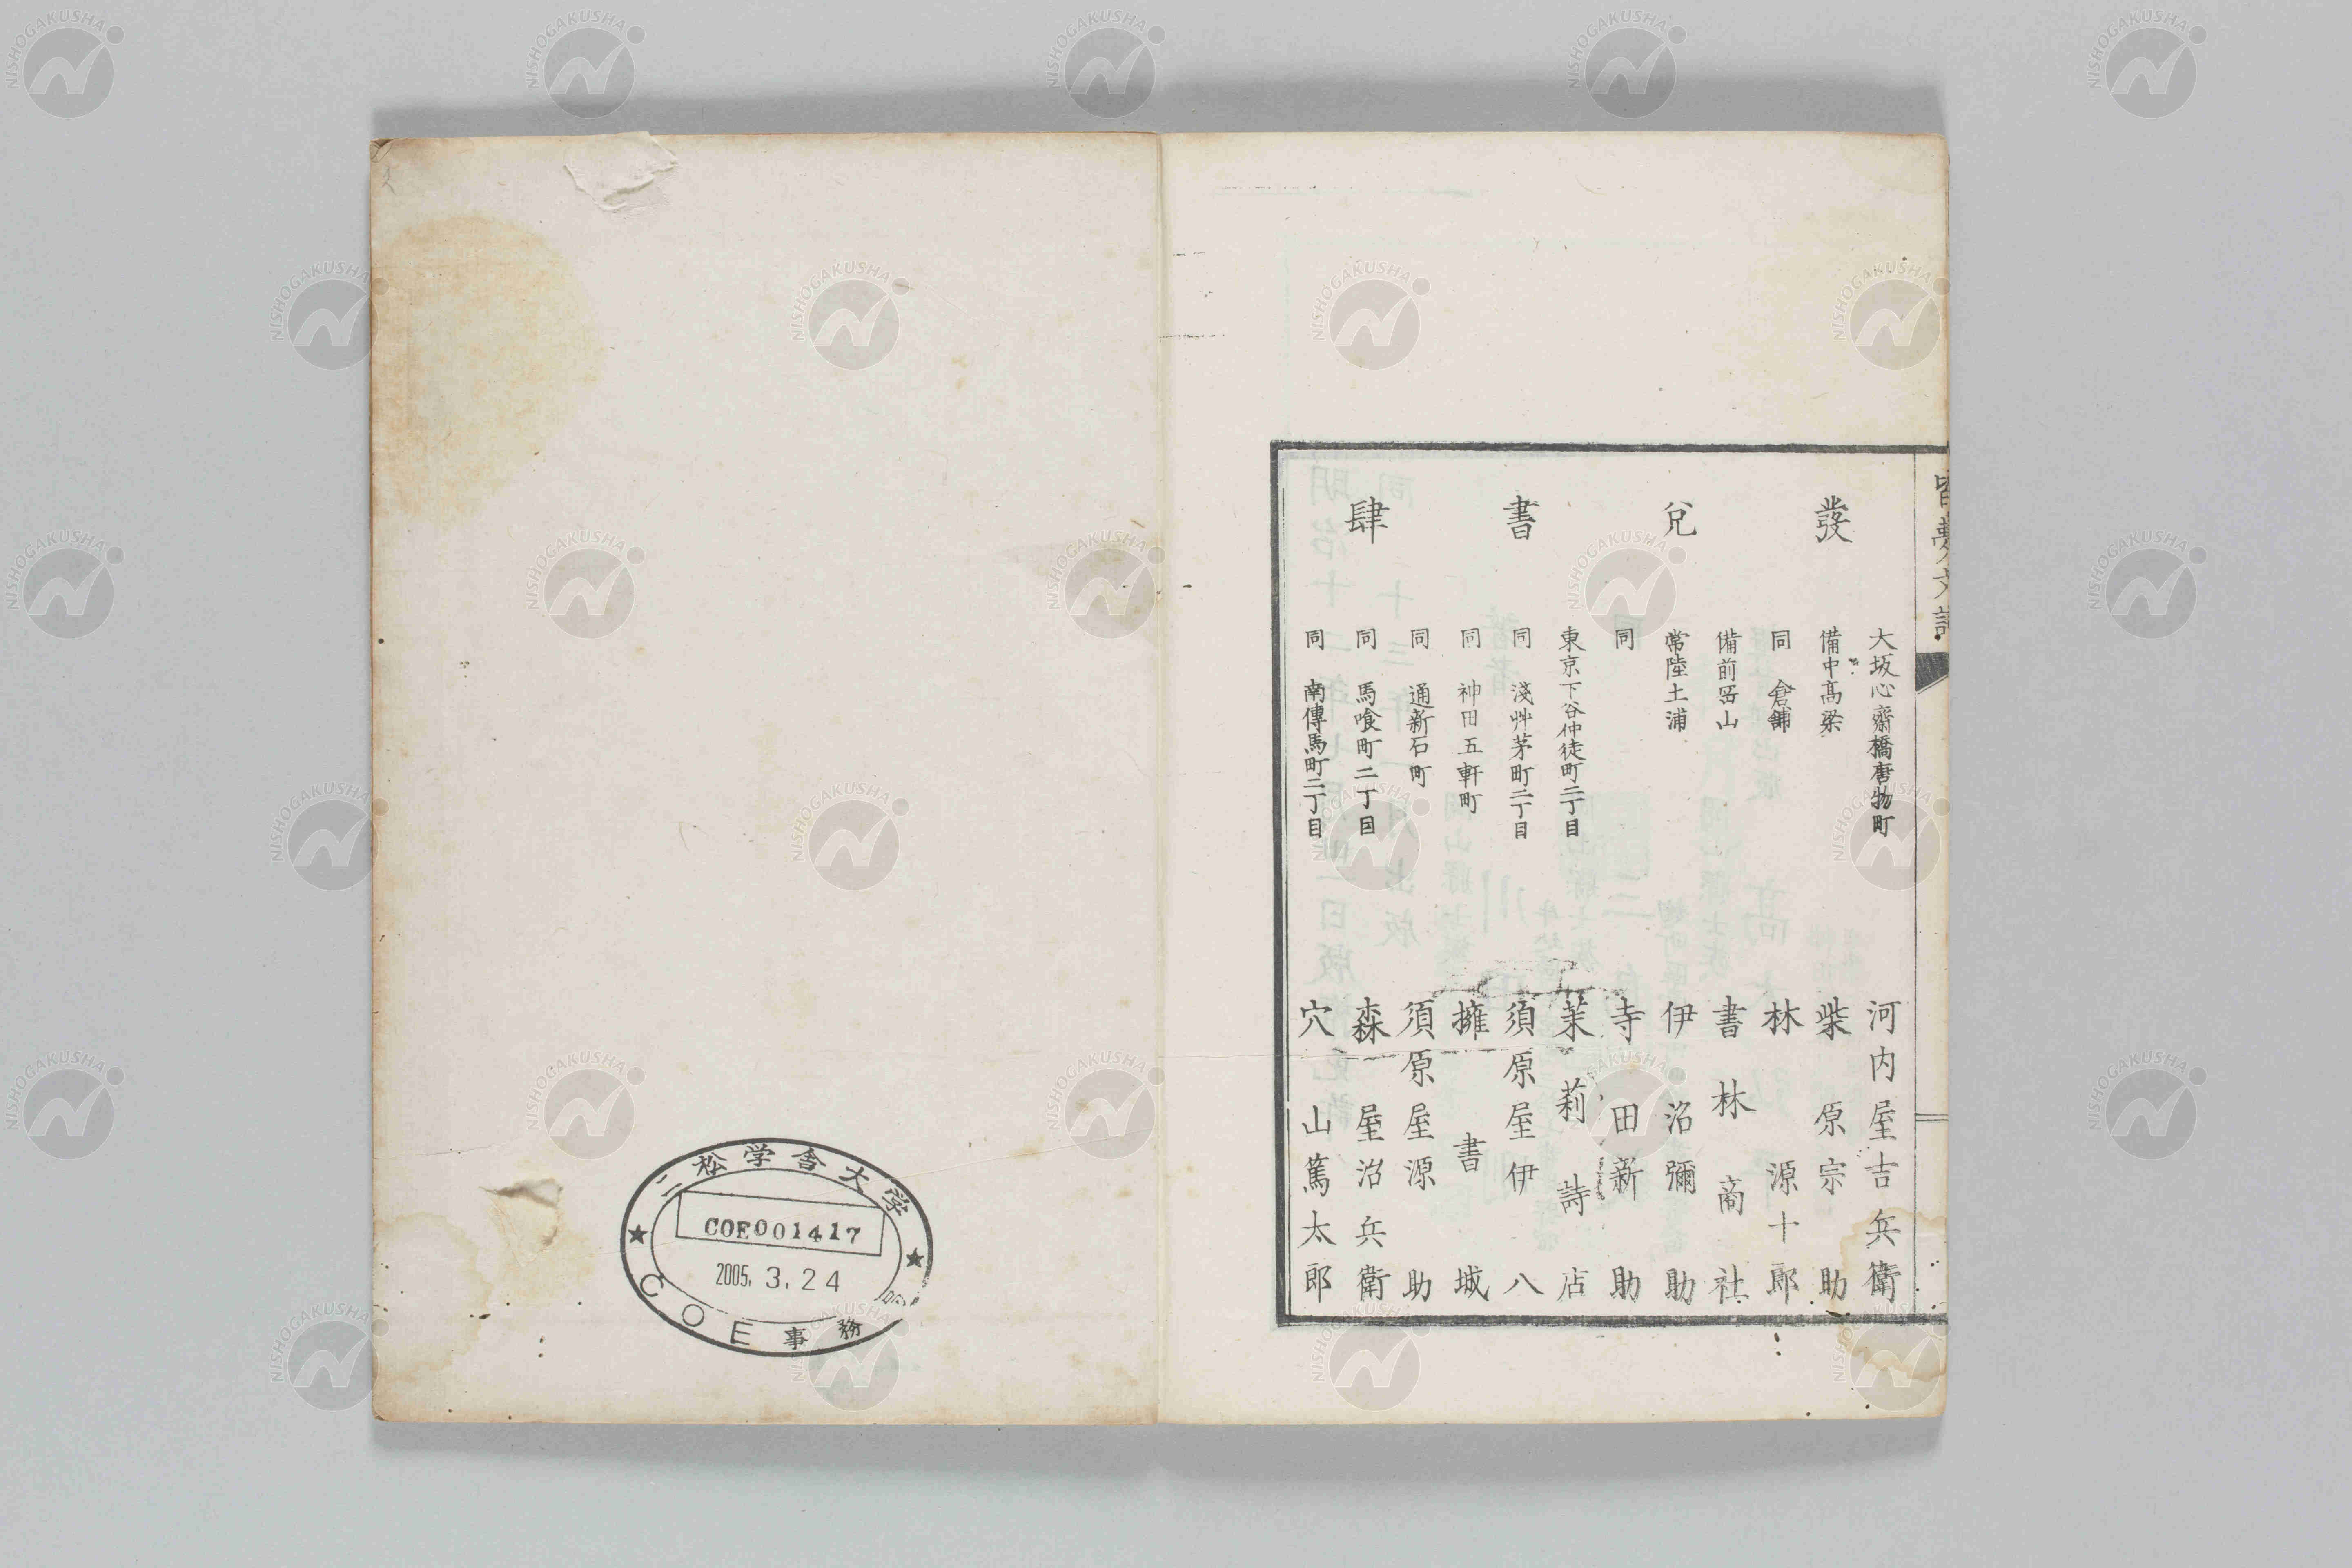 發兌書肆
大坂心齋橋唐物町 河内屋吉兵衛
備中高梁 柴原宗助
同 倉鋪 林源十郎
備前岡山 書林商社
常陸土浦 伊沼彌助
同 寺田新助
東京下谷仲徒町二丁目 茉莉詩店
同 淺艸茅町二丁目 須原屋伊八
同 神田五軒町 擁書城
同 通新石町 須原屋源助
同 馬喰町二丁目 森屋沼兵衛
同 南傳馬町二丁目 穴山篤太郎
二松学舎大学
COE001417
2005. 3. 24
COE事務
NISHOGAKUSHA